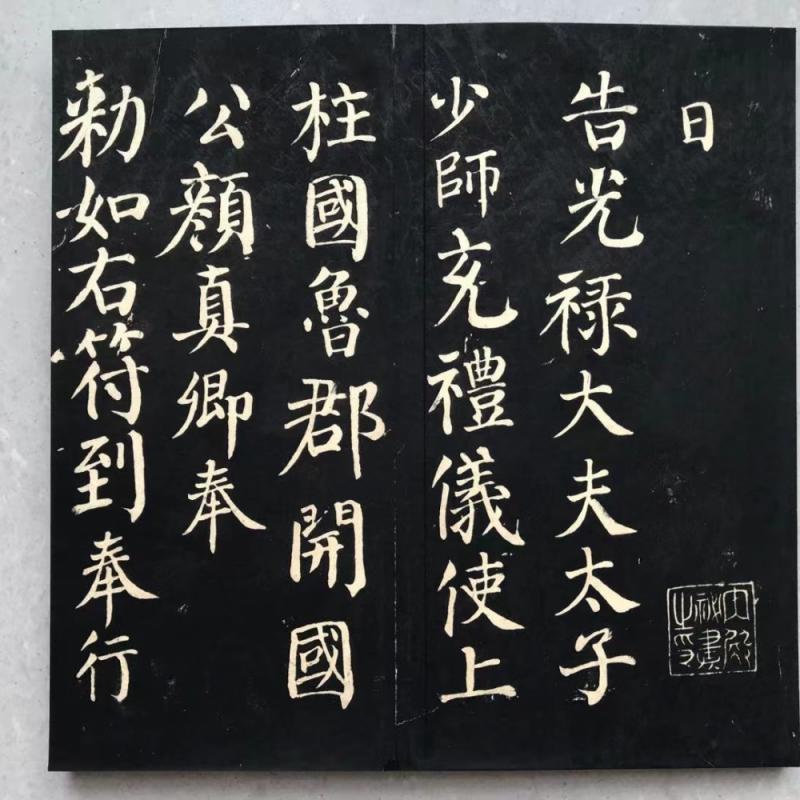 日
告光禄大夫太子
少師充禮儀使上
柱國魯郡開國
公顔真卿奉
勑如右符到奉行